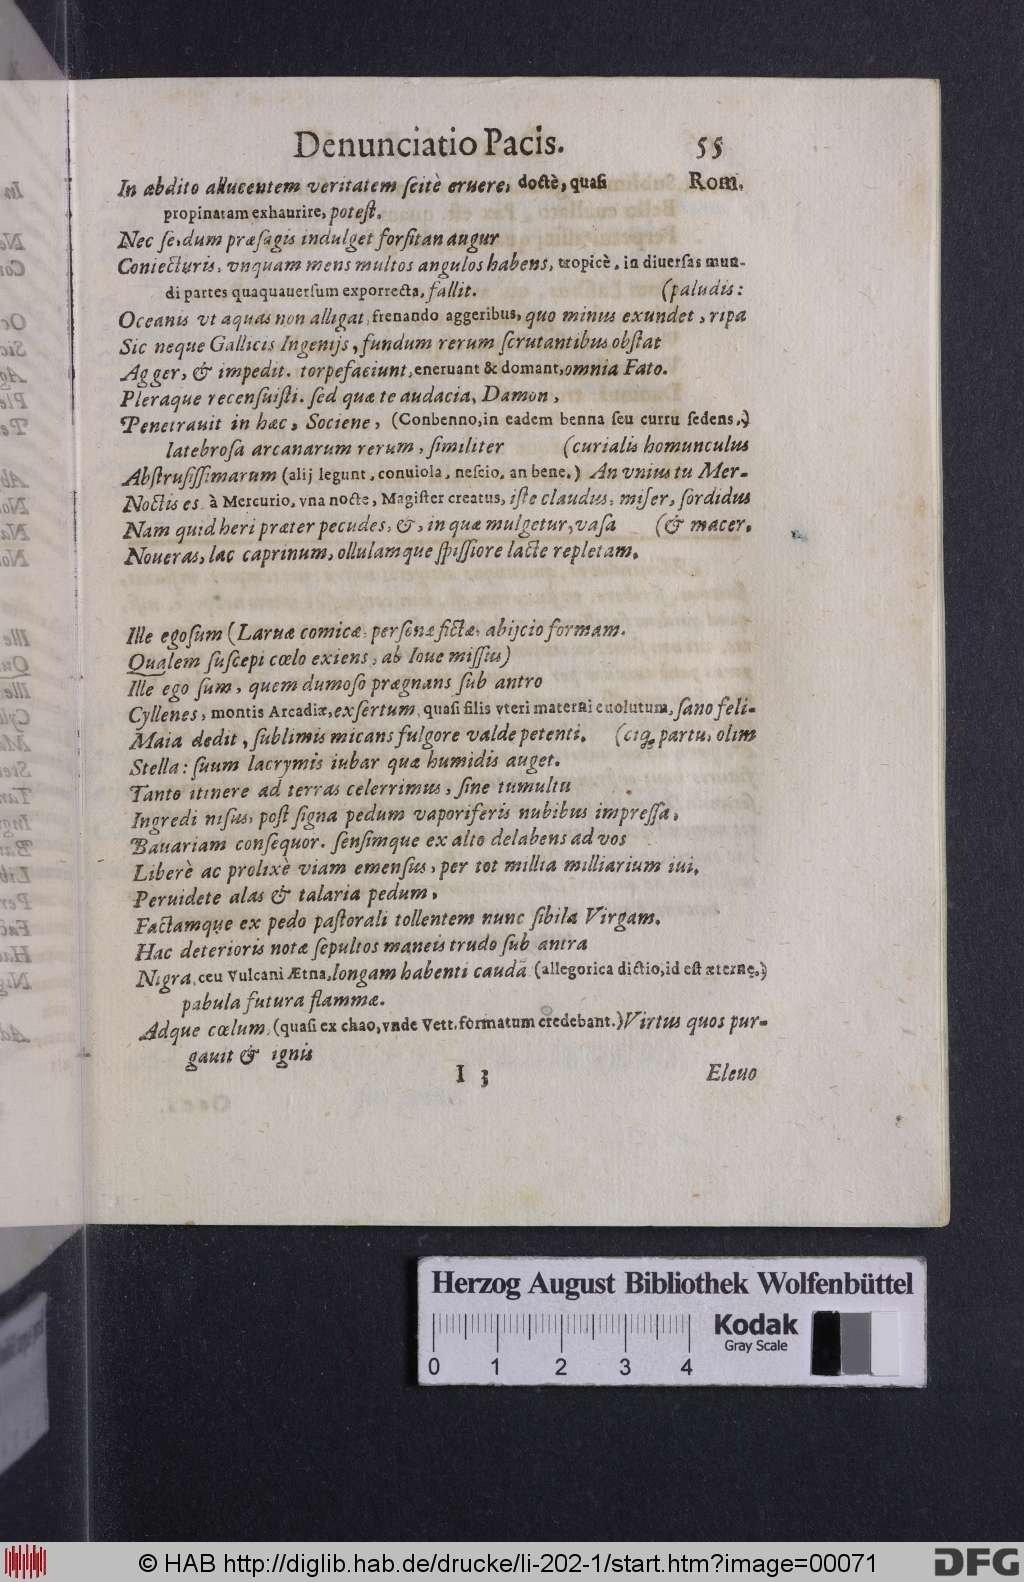 Denunciatio Pacis. 55
In abdito allucentem veritatem scitè eruere, doctè, quasi Rom.
propinatam exhaurire, potest.
Nec se, dum præsagis indulget forsitan augur
Coniecturis, vnquam mens multos angulos habens, tropicè, in diuersas mun-
di partes quaquauersum exporrecta, fallit. (paludis:
Oceanis vt aquas non alligat, frenando aggeribus, quo minus exundet, ripa
Sic neque Gallicis Ingenijs, fundum rerum scrutantibus obstat
Agger, & impedit. torpefaciunt, eneruant & domant, omnia Fato.
Pleraque recensuisti. sed quæ te audacia, Damon,
Penetrauit in hæc, Sociene, (Conbenno, in eadem benna seu curru sedens,)
latebrosa arcanarum rerum, similiter (curialis homunculus
Abstrusissimarum (alij legunt, conuiola, nescio, an bene.) An vnius tu Mer-
Noctis es à Mercurio, vna nocte, Magister creatus, iste claudus, miser, sordidus
Nam quid heri præter pecudes, &, in quæ mulgetur, vasa (& macer.
Noueras, lac caprinum, ollulamque spissiore lacte repletam.
Ille ego sum (Laruæ comicæ, personæ fictæ, abijcio formam.
Qualem suscepi cœlo exiens, ab Ioue missus)
Ille ego sum, quem dumoso prægnans sub antro
Cyllenes, montis Arcadiæ, exsertum, quasi filis vteri materni euolutum, sano feli-
Maia dedit, sublimis micans fulgore valde petenti. (ciq; partu, olim
Stella: suum lacrymis iubar quæ humidis auget.
Tanto itinere ad terras celerrimus, sine tumultu
Ingredi nisus, post signa pedum vaporiferis nubibus impressa,
Bauariam consequor. sensimque ex alto delabens ad vos
Liberè ac prolixè viam emensus, per tot millia milliarium iui.
Peruidete alas & talaria pedum,
Factamque ex pedo pastorali tollentem nunc sibila Virgam.
Hac deterioris notæ sepultos maneis trudo sub antra
Nigra, ceu Vulcani Ætna, longam habenti caudā (allegorica dictio, id est æternę,)
pabula futura flammæ.
Adque cœlum, (quasi ex chao, vnde Vett. formatum credebant.) Virtus quos pur-
gauit & ignis
I 3 Eleuo
Herzog August Bibliothek Wolfenbüttel
Kodak
Gray Scale
0 1 2 3 4
© HAB http://diglib.hab.de/drucke/li-202-1/start.htm?image=00071
DFG